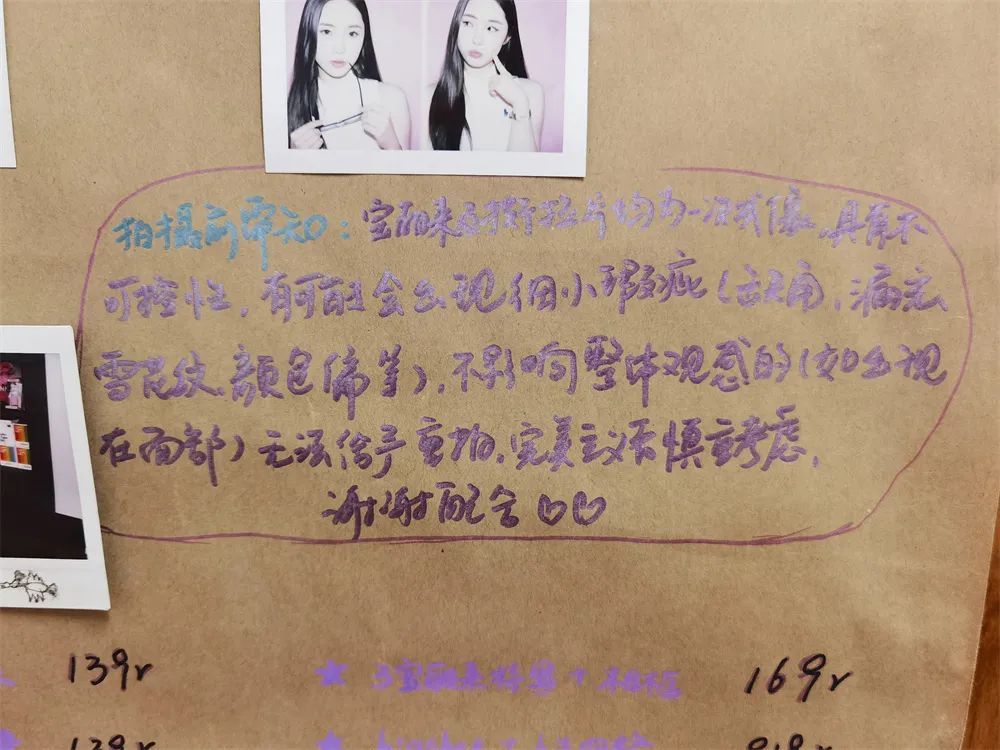 拍摄前需知：宝丽来及撕拉片均为一次成像，具有不
可控性，有可能会出现细小瑕疵（缺角、漏光
雪花纹、颜色偏等），不影响整体观感的（如出现
在面部）无法给予重拍，完美主义者慎重考虑，
谢谢配合
139r
169r